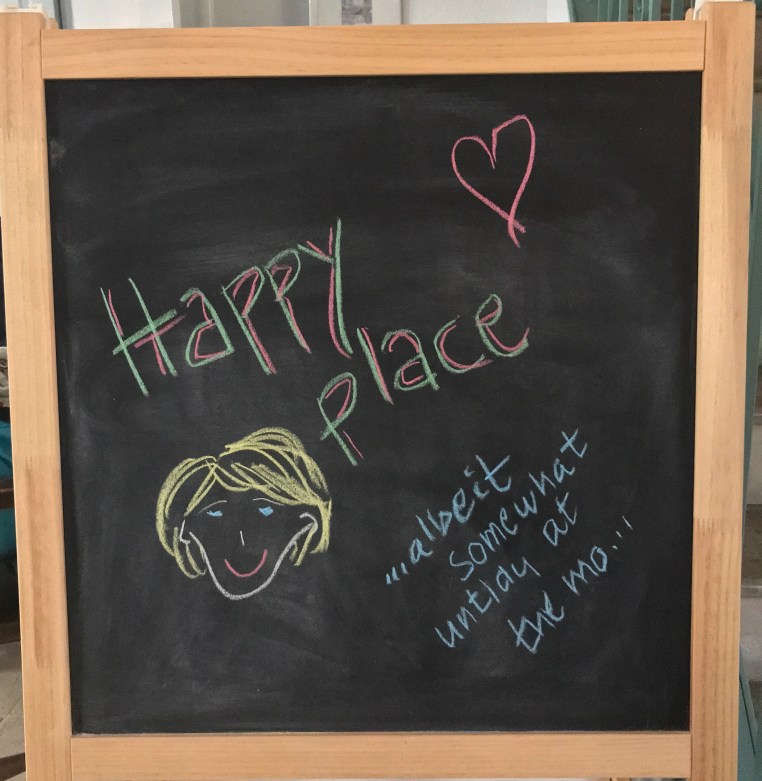 Happy
Place
...albeit
somewhat
untidy at
the mo...